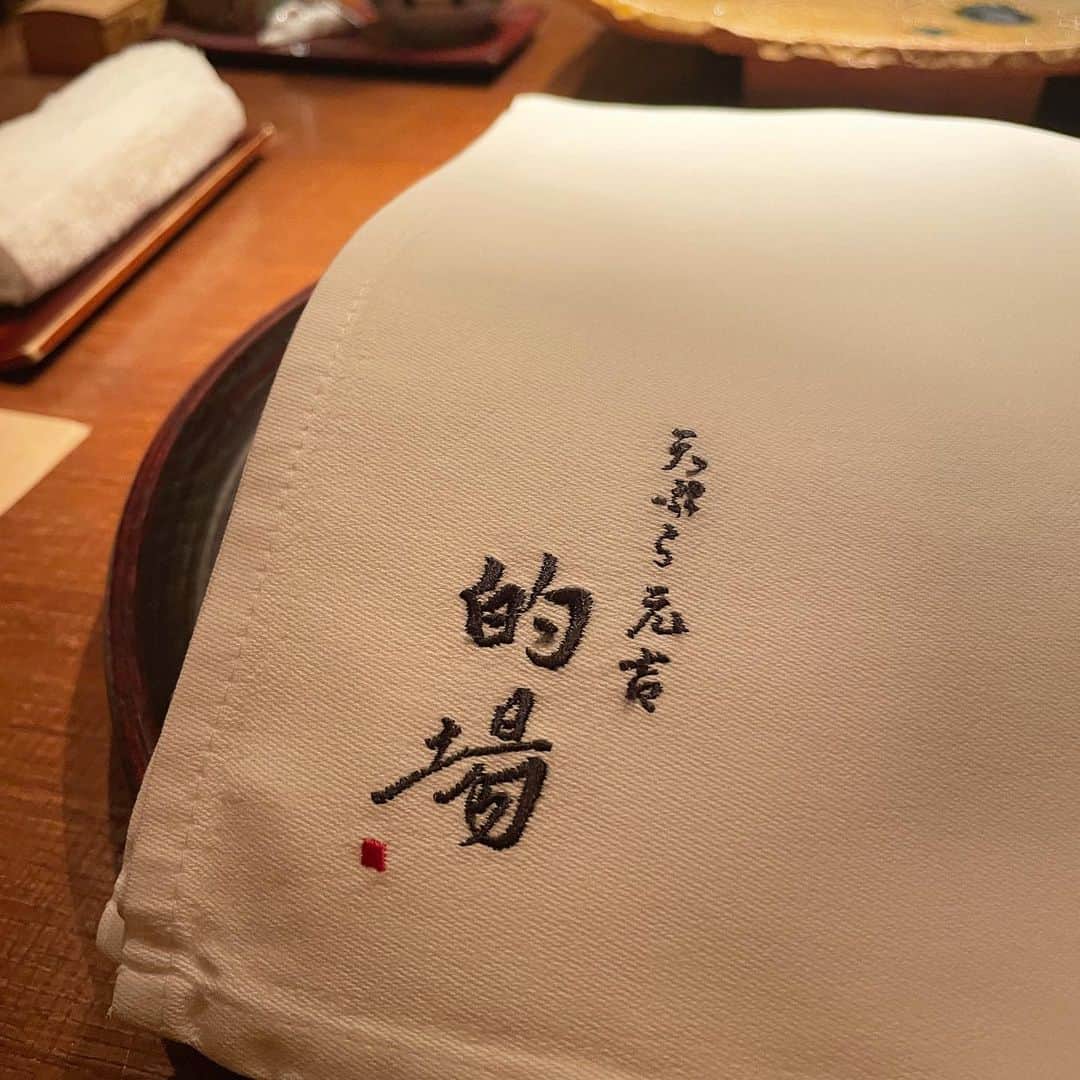 天ぷら元吉
的場